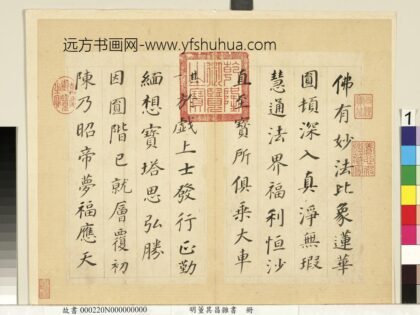 远方书画网-www.yfshuhua.com
佛有妙法比象蓮華
圓頓深入真淨無瑕
慧通法界福利恒沙
直至寶所俱乘大車
於戲上士發行正勤
緬想寶塔思弘勝
因圓階已就層覆初
陳乃昭帝夢福應天
乾隆御覽之寶
1
故書 000220N000000000
明董其昌雜書 冊